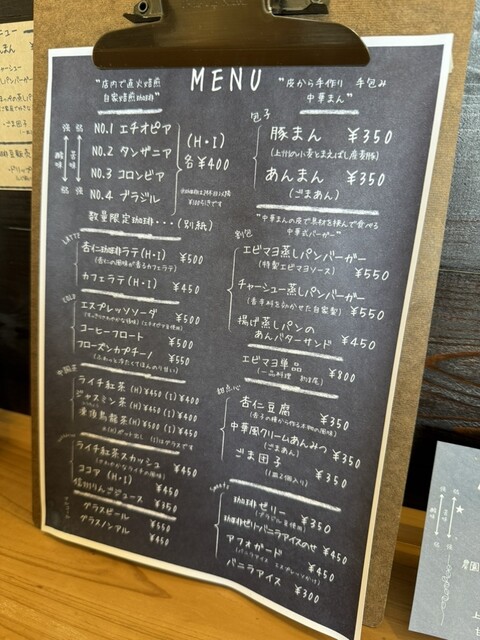 MENU
"店内で直火焙煎
自家焙煎珈琲"
強 弱
酸味 苦味
弱 強
NO.1 エチオピア
NO.2 タンザニア
NO.3 コロンビア
NO.4 ブラジル
(H・I)
各¥400
¥100引きです
数量限定珈琲・・・(別紙)
LATTE
杏仁珈琲ラテ(H・I) ¥500
(杏仁の風味が香るカフェラテ)
カフェラテ(H・I) ¥450
COLD
エスプレッソソーダ ¥500
コーヒーフロート ¥500
フローズンカプチーノ ¥550
(ふわっと冷たくてほんのり甘い)
中国茶
ライチ紅茶 (H)¥450 (I)¥400
ジャスミン茶 (H)¥450 (I)¥400
凍頂烏龍茶(H)¥500 (I)¥450
※(H)ポット出し (I)はグラスです
ライチ紅茶スカッシュ ¥450
(さわやかなライチの風味)
ココア (H・I) ¥450
信州りんごジュース ¥350
グラスビール ¥550
グラスノンアル ¥450
"皮から手作り 手包み
中華まん"
包子
豚まん ¥350
あんまん ¥350
(ごまあん)
"中華まんの皮で具材を挟んで食べる
中華式バーガー"
割包
エビマヨ蒸しパンバーガー ¥550
(特製エビマヨソース)
チャーシュー蒸しパンバーガー ¥550
揚げ蒸しパンの
あんバターサンド ¥450
エビマヨ単品 ¥800
甜点心
杏仁豆腐 ¥350
(杏子の種から作る本物の風味)
中華風クリームあんみつ ¥350
(ごまあん)
ごま団子 ¥350
(1皿2個入り)
sweets
珈琲ゼリー ¥350
(ブラジル豆使用)
珈琲ゼリーバニラアイスのせ ¥450
アフォガード ¥450
(バニラアイス エスプレッソがけ)
バニラアイス ¥300